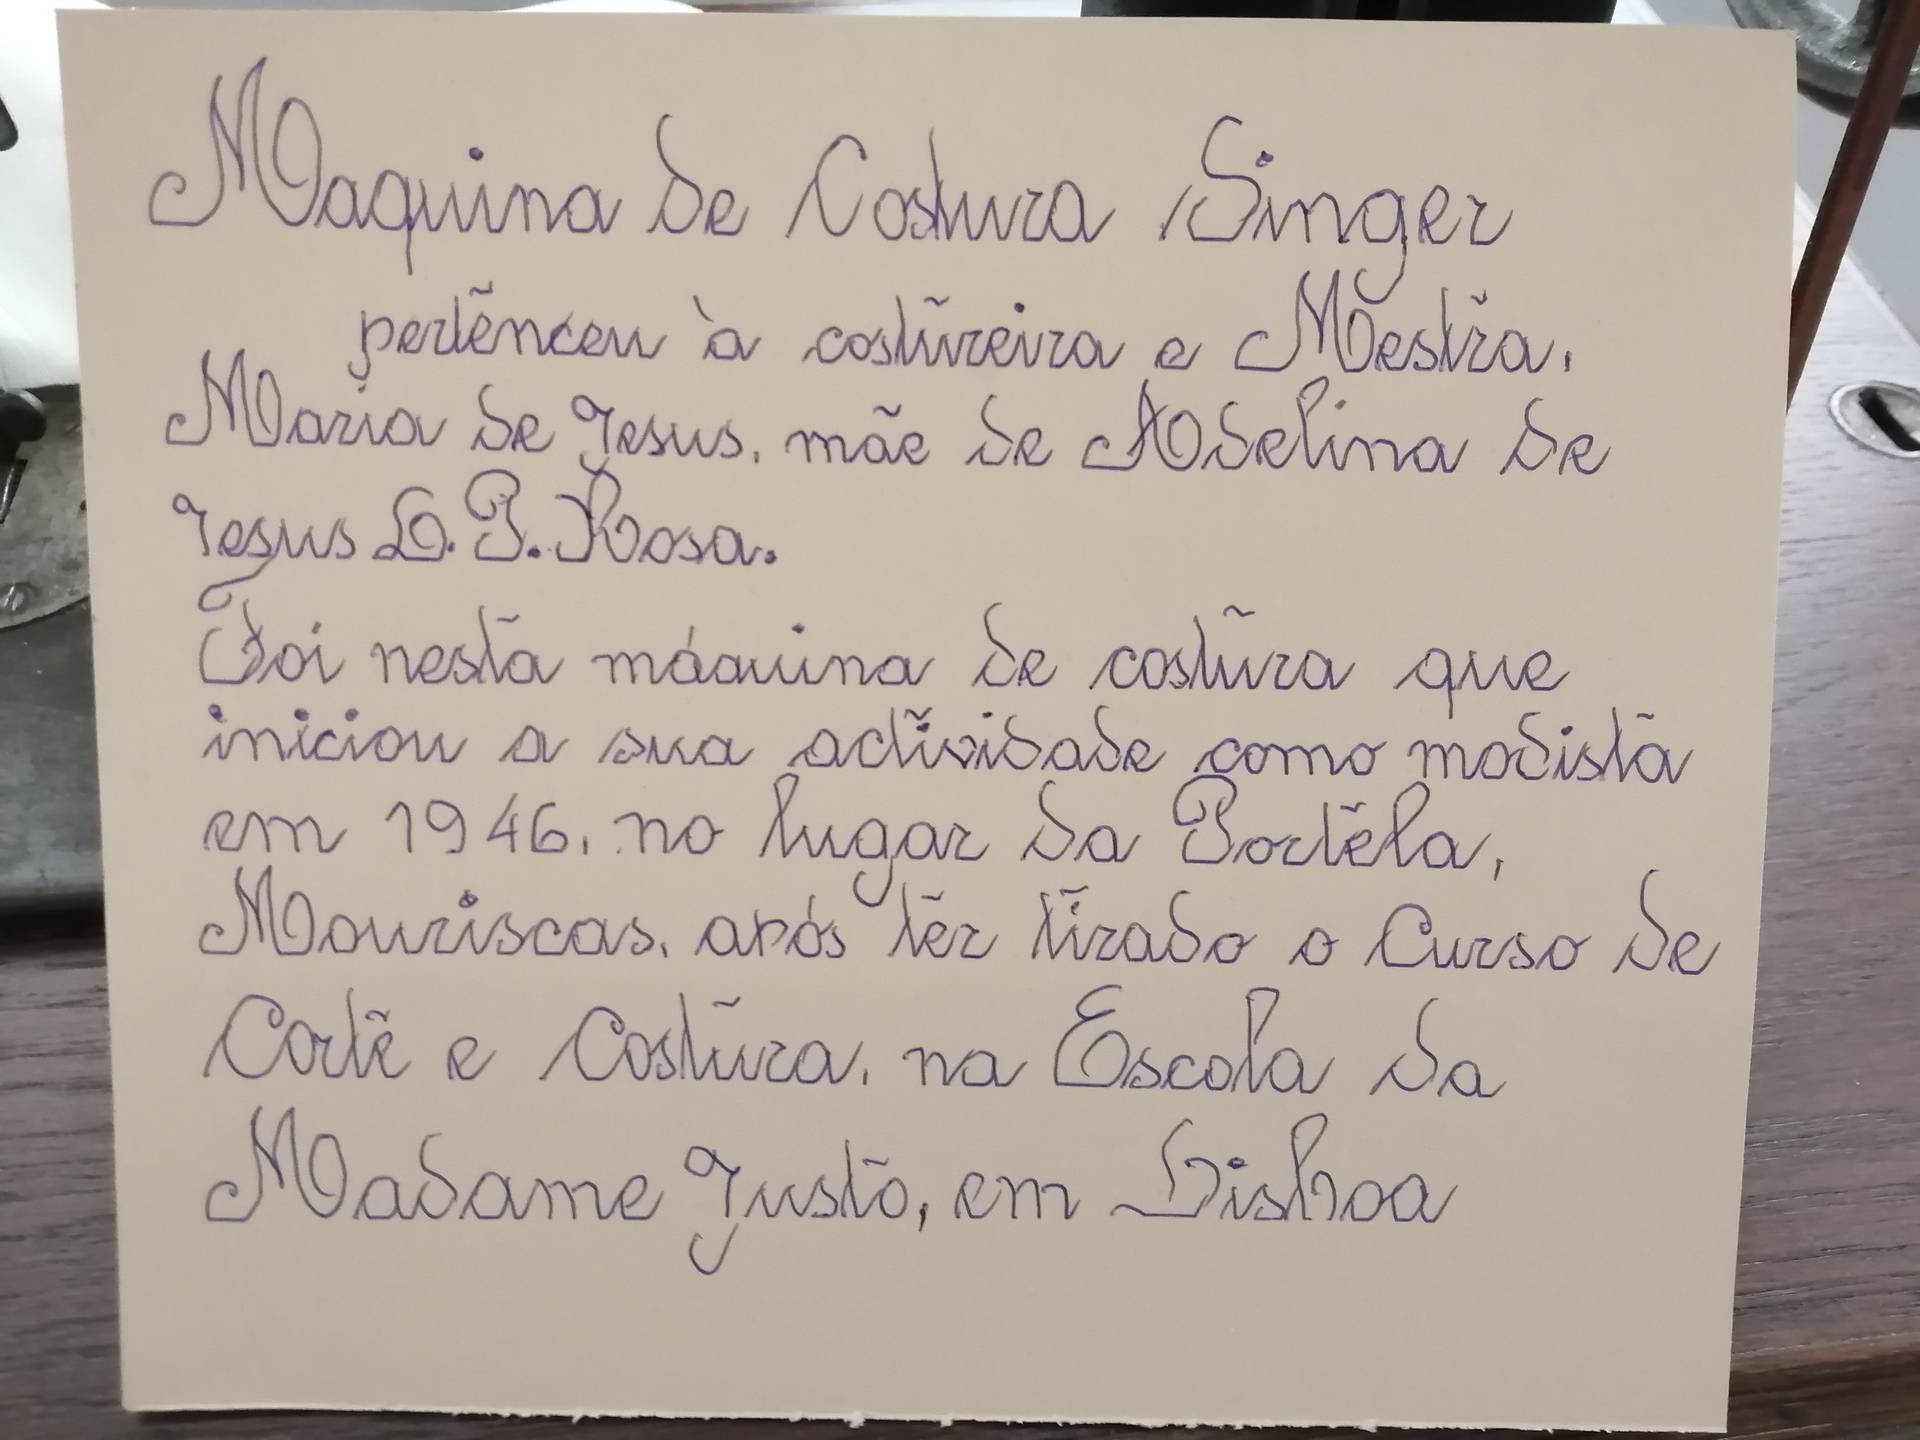 Maquina de Costura Singer
pertenceu à costureira e Mestra,
Maria de Jesus, mãe de Adelina de
Jesus L. P. Rosa.
Foi nesta máquina de costura que
iniciou a sua actividade como modista
em 1946, no lugar da Portela,
Mouriscas, após ter tirado o Curso de
Corte e Costura, na Escola da
Madame Justo, em Lisboa